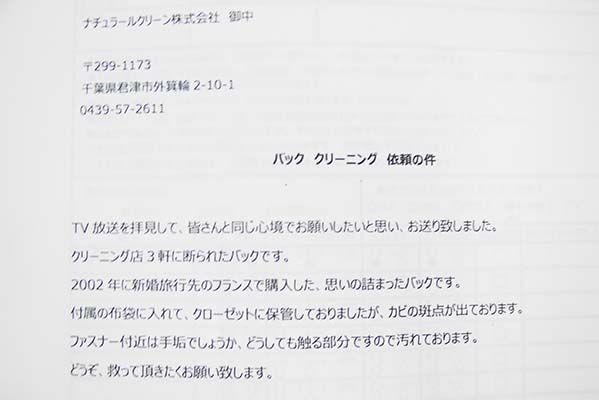 ナチュラールクリーン株式会社 御中
〒299-1173
千葉県君津市外箕輪 2-10-1
0439-57-2611
バック クリーニング 依頼の件
TV 放送を拝見して、皆さんと同じ心境でお願いしたいと思い、お送り致しました。
クリーニング店 3 軒に断られたバックです。
2002 年に新婚旅行先のフランスで購入した、思いの詰まったバックです。
付属の布袋に入れて、クローゼットに保管しておりましたが、カビの斑点が出ております。
ファスナー付近は手垢でしょうか、どうしても触る部分ですので汚れております。
どうぞ、救って頂きたくお願い致します。